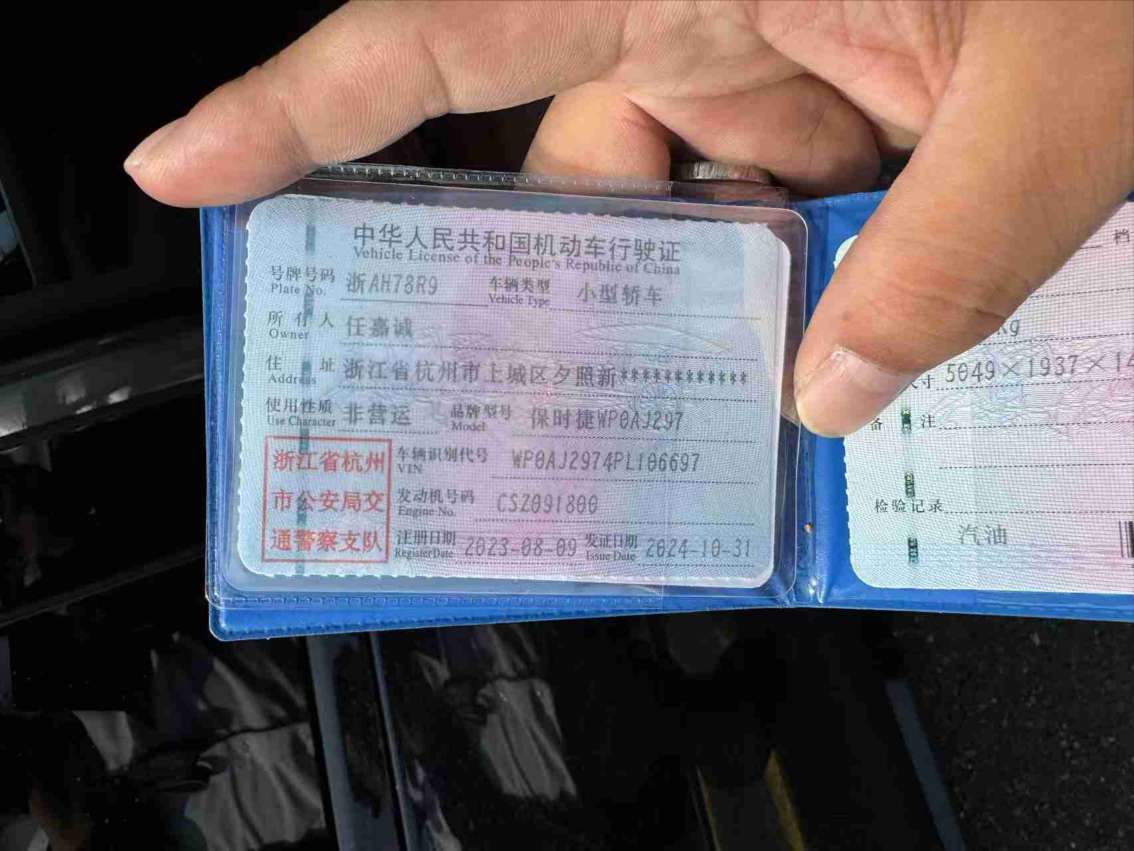 中华人民共和国机动车行驶证
Vehicle License of the People's Republic of China
号牌号码 浙AH78R9 车辆类型 小型轿车
Plate No. Vehicle Type
所有人 任嘉诚
Owner
住址 浙江省杭州市上城区夕照新************
Address
使用性质 非营运 品牌型号 保时捷WP0AJ297
Use Character Model
车辆识别代号 WP0AJ2974PL106697
VIN
发动机号码 CSZ091800
Engine No.
注册日期 2023-08-09 发证日期 2024-10-31
Register Date Issue Date
浙江省杭州
市公安局交
通警察支队
档
kg
寸 5049×1937×14
备注
检验记录
汽油